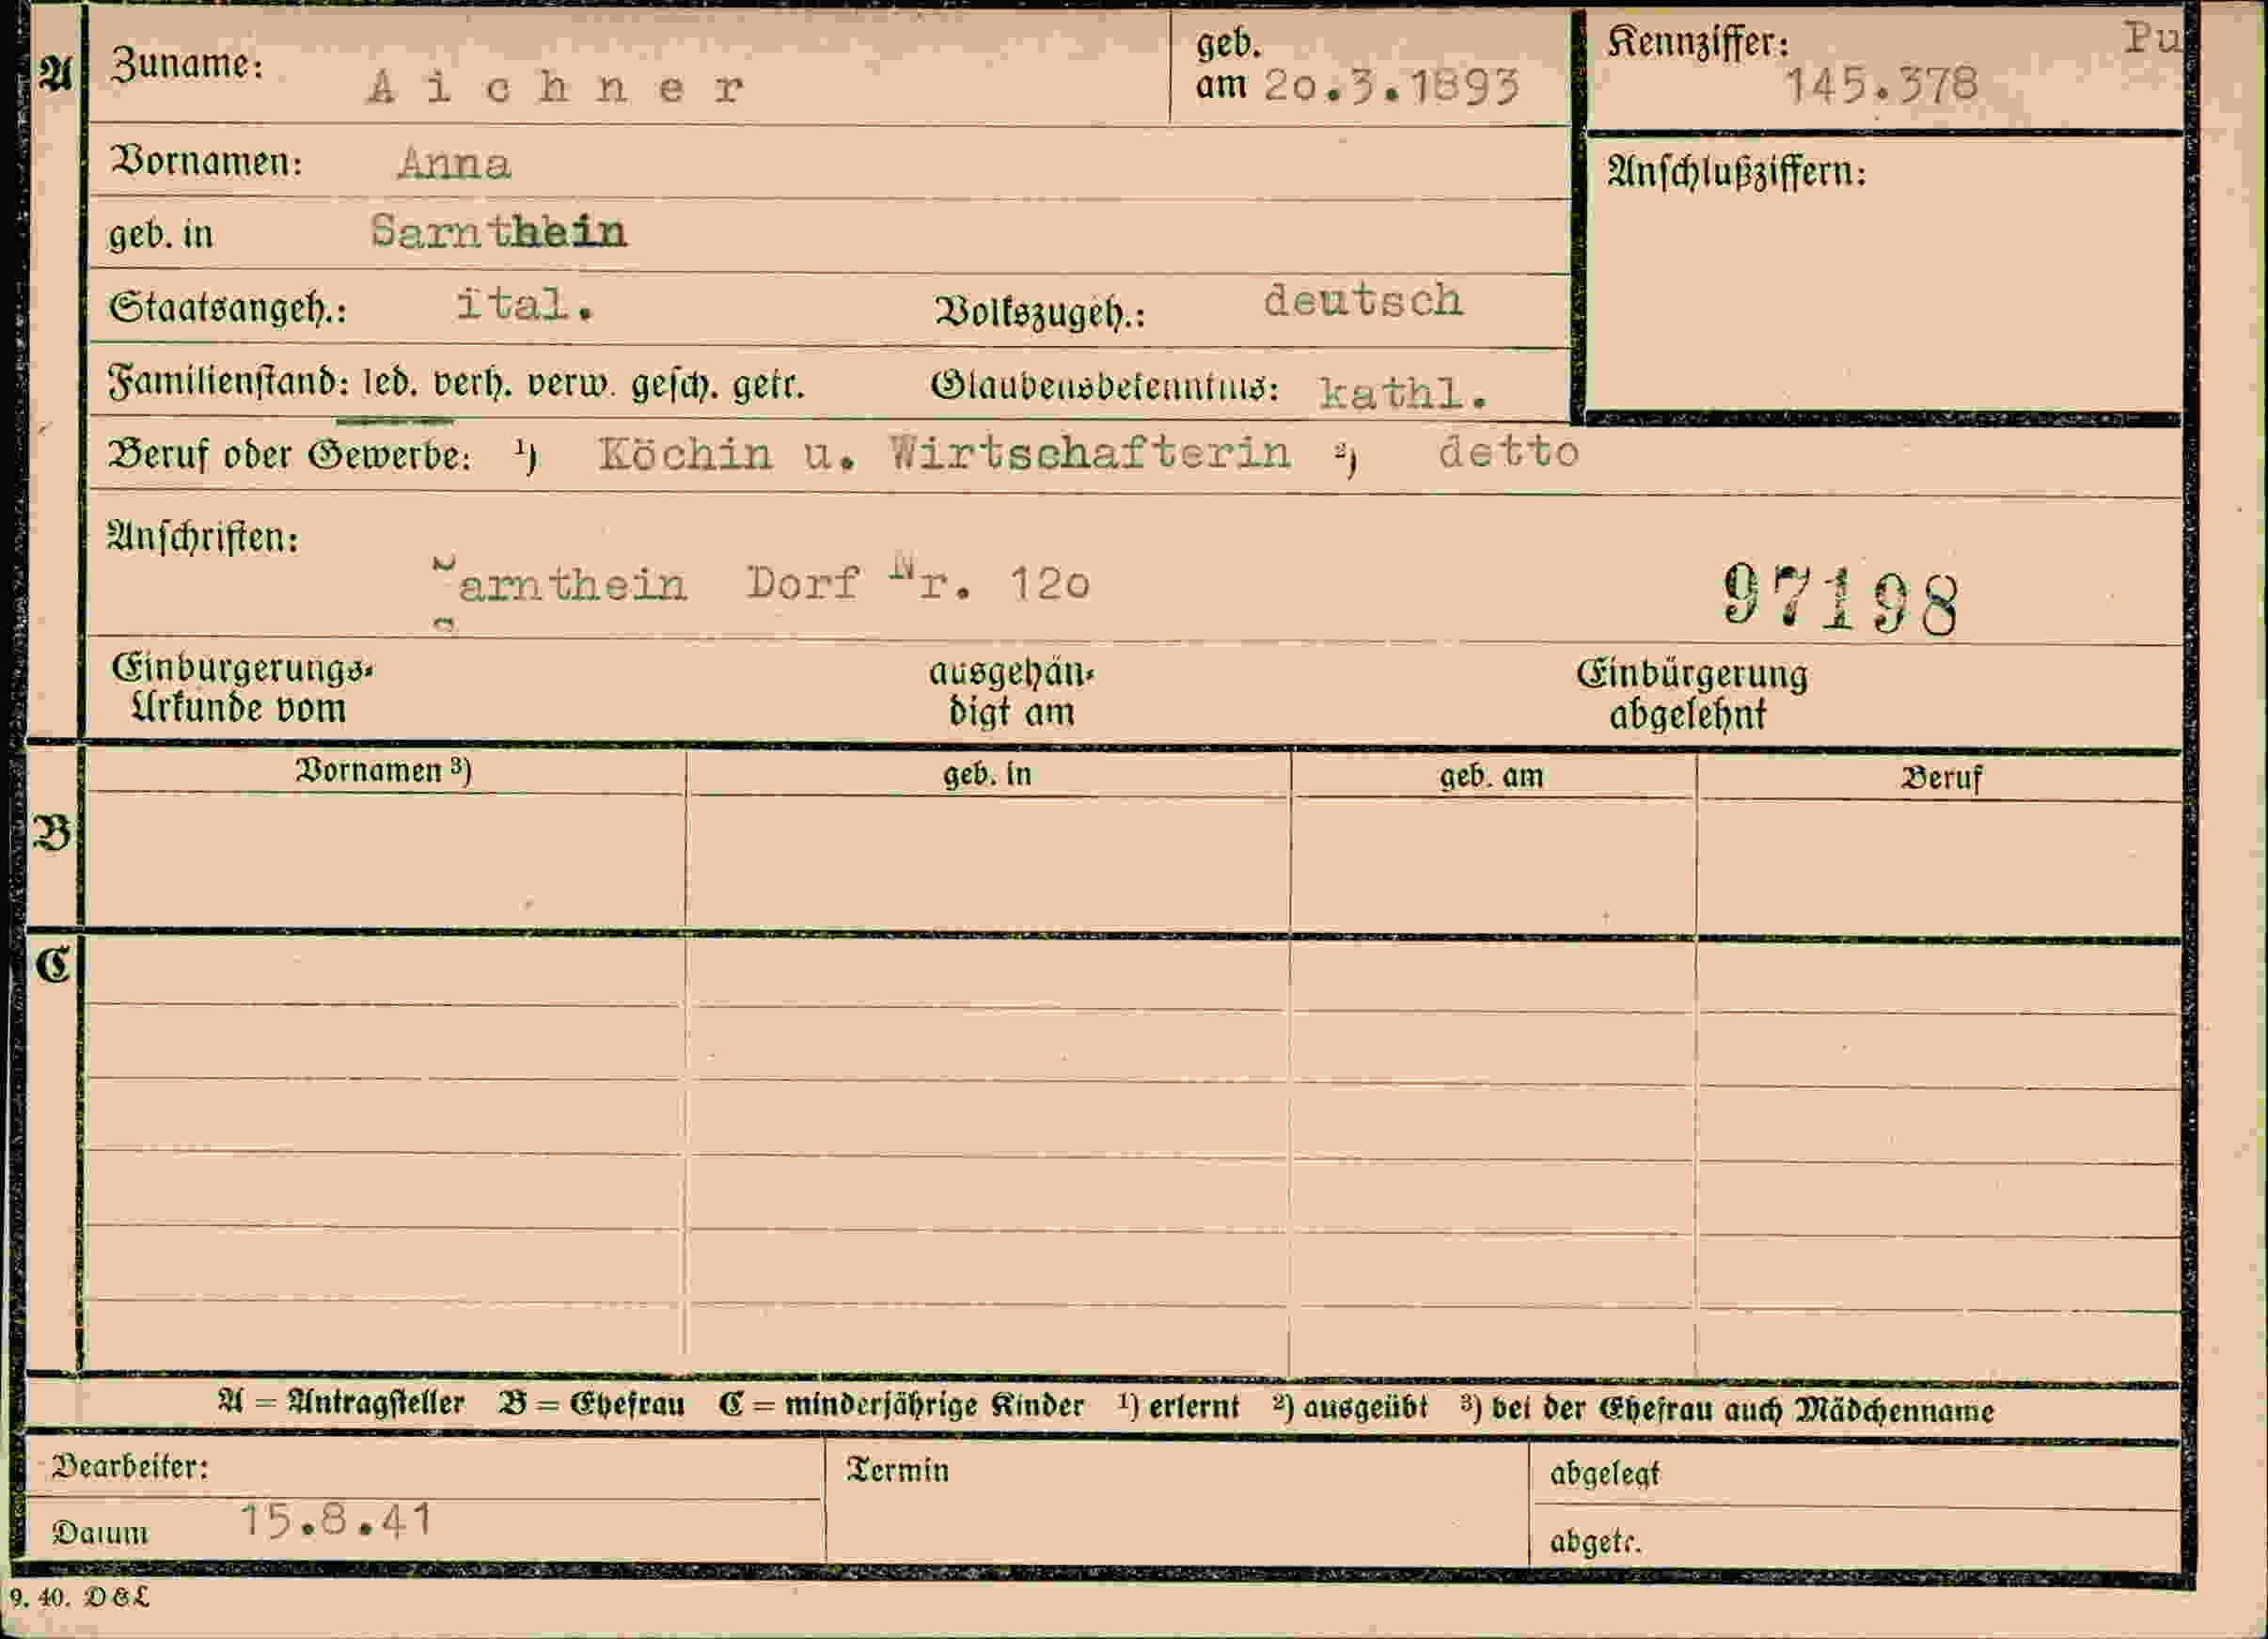 A Zuname: Aichner geb. am 20.3.1893 Kennziffer: Pu 145.378
Vornamen: Anna Anschlußziffern:
geb. in Sarnthein
Staatsangeh.: ital. Volkszugeh.: deutsch
Familienstand: led. verh. verw. gesch. getr. Glaubensbekenntnis: kathl.
Beruf oder Gewerbe: ¹) Köchin u. Wirtschafterin ²) detto
Anschriften:
Sarnthein Dorf Nr. 120 97198
Einbürgerungs- ausgehän- Einbürgerung
Urkunde vom digt am abgelehnt
Vornamen ³) geb. in geb. am Beruf
B
C
A = Antragsteller B = Ehefrau C = minderjährige Kinder ¹) erlernt ²) ausgeübt ³) bei der Ehefrau auch Mädchenname
Bearbeiter: Termin abgelegt
Datum 15.8.41 abgetr.
9. 40. D&L